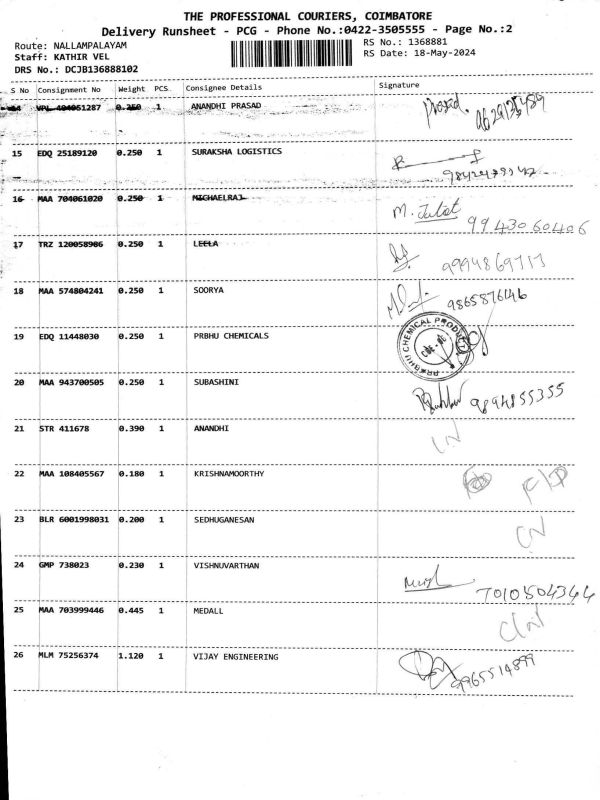 THE PROFESSIONAL COURIERS, COIMBATORE
Delivery Runsheet - PCG - Phone No.:0422-3505555 - Page No.:2
Route: NALLAMPALAYAM
Staff: KATHIR VEL
DRS No.: DCJB136888102
RS No.: 1368881
RS Date: 18-May-2024
S No Consignment No Weight PCS Consignee Details Signature
14 VPL 404061287 0.250 1 ANANDHI PRASAD Prasad.
15 EDQ 25189120 0.250 1 SURAKSHA LOGISTICS
16 MAA 704061020 0.250 1 MICHAELRAJ M. Juliet 9943060406
17 TRZ 120058906 0.250 1 LEELA
18 MAA 574804241 0.250 1 SOORYA 9865876146
19 EDQ 11448030 0.250 1 PRBHU CHEMICALS PRABHU CHEMICAL PRODUCTS CBE
20 MAA 943700505 0.250 1 SUBASHINI 9894855355
21 STR 411678 0.390 1 ANANDHI
22 MAA 108405567 0.180 1 KRISHNAMOORTHY
23 BLR 6001998031 0.200 1 SEDHUGANESAN
24 GMP 738023 0.230 1 VISHNUVARTHAN 7010504344
25 MAA 703999446 0.445 1 MEDALL
26 MLM 75256374 1.120 1 VIJAY ENGINEERING 9965514899